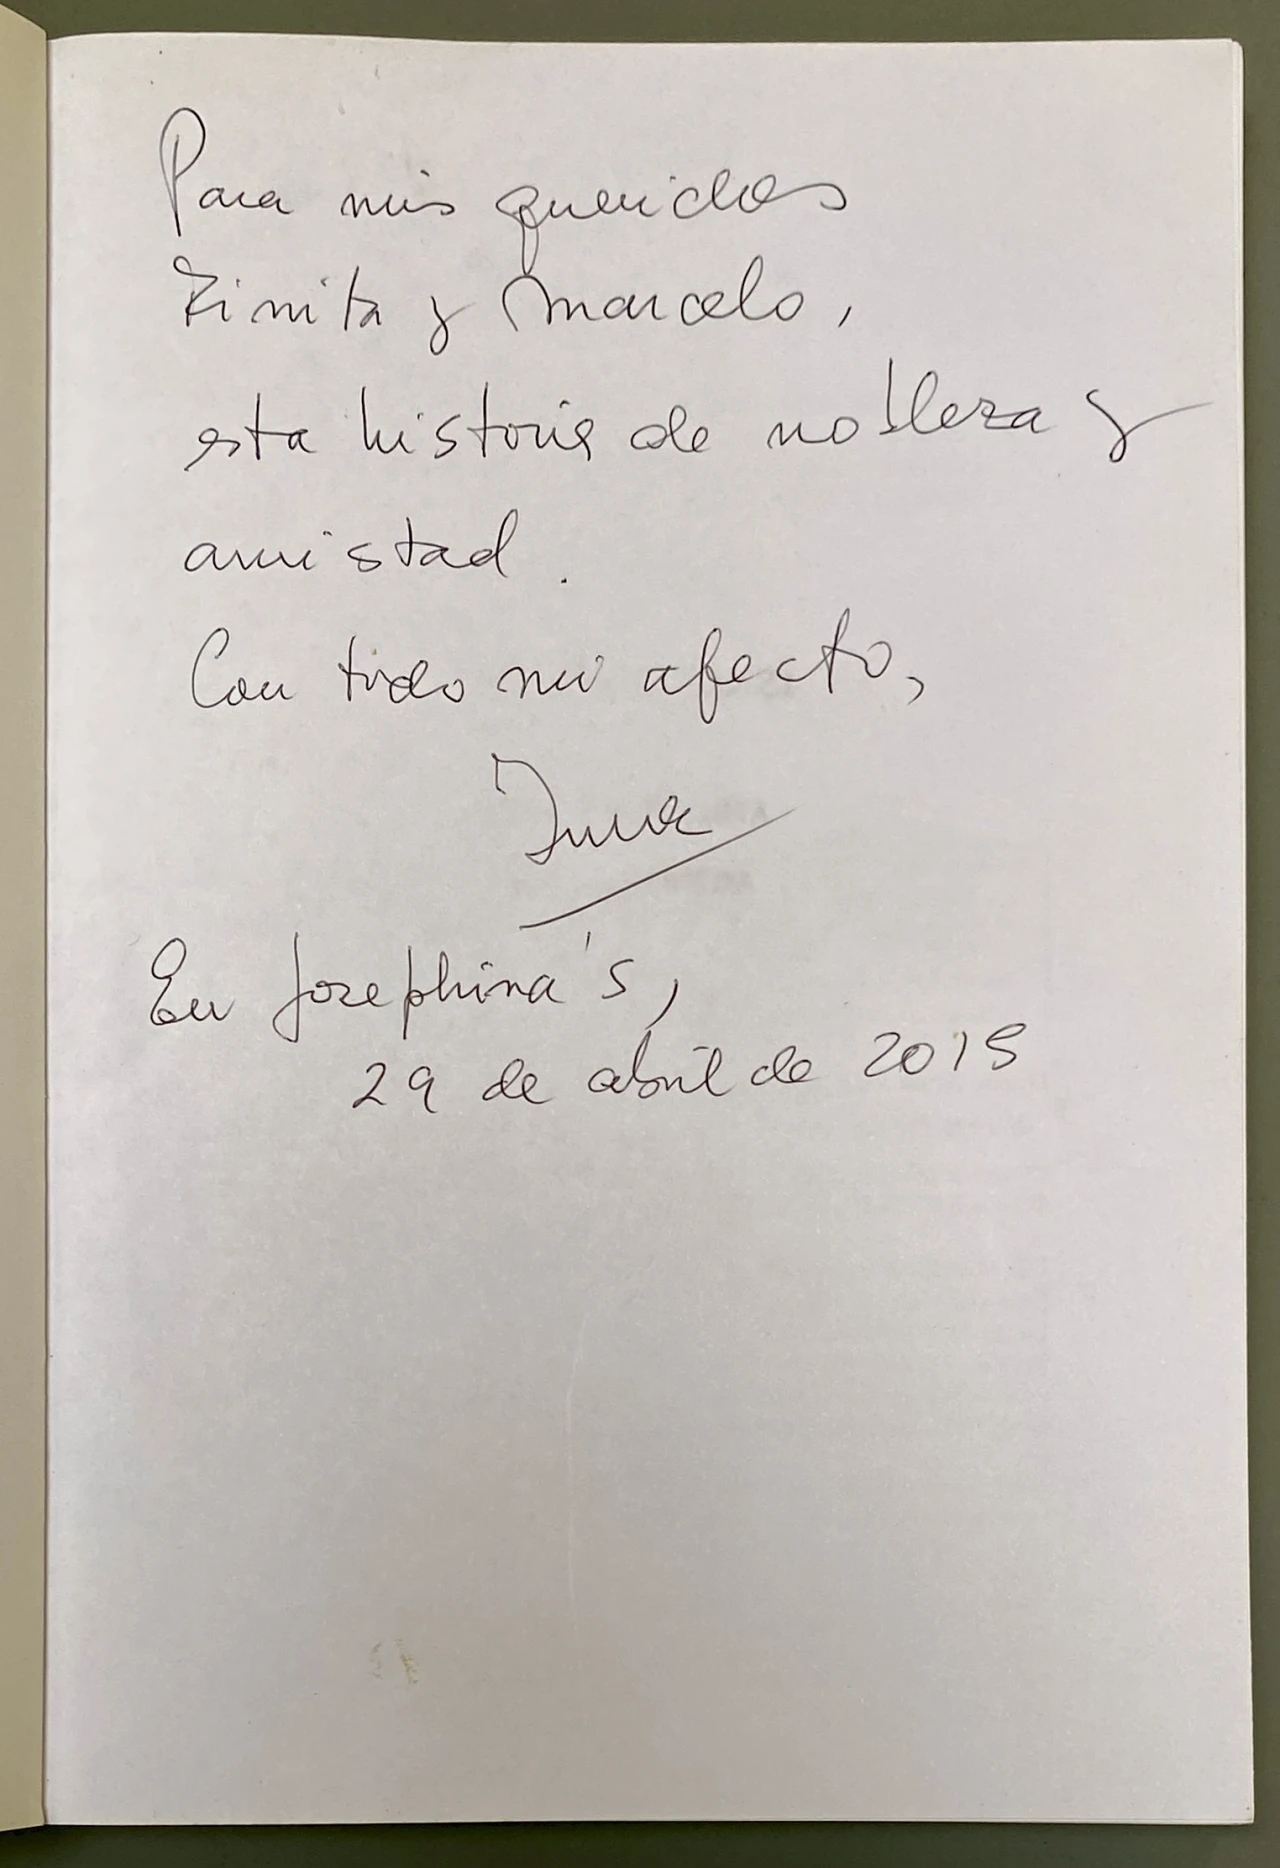 Para mis queridos
y Marcelo,
esta historia de nobleza y
amistad.
Con todo mi afecto,
En Josephina's,
29 de abril de 2015